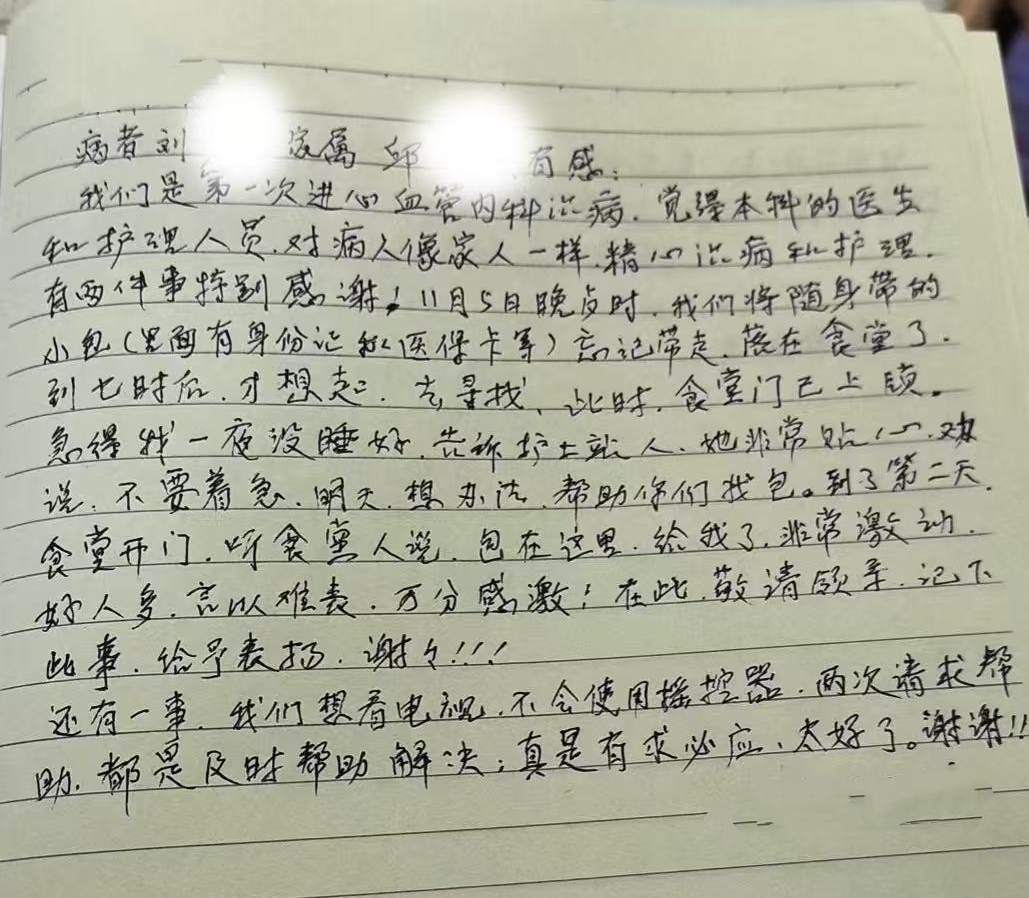 病者刘 家属 邱 有感:
我们是第一次进心血管内科治病.觉得本科的医生
和护理人员.对病人像家人一样.精心治病和护理.
有两件事特别感谢!11月5日晚 时.我们将随身带的
小包(里面有身份证和医保卡等)忘记带走.落在食堂了.
到七时后.才想起.去寻找.此时.食堂门已上锁。
急得我一夜没睡好.告诉护士站人.她非常贴心.
说.不要着急.明天.想办法.帮助你们找包。到了第二天.
食堂开门.听食堂人说.包在这里.给我了.非常激动.
好人多.言以难表.万分感激!在此.敬请领导.记下
此事.给予表扬.谢々!!!
还有一事.我们想看电视.不会使用摇控器.两次请求帮
助.都是及时帮助解决;真是有求必应.太好了。谢谢!!